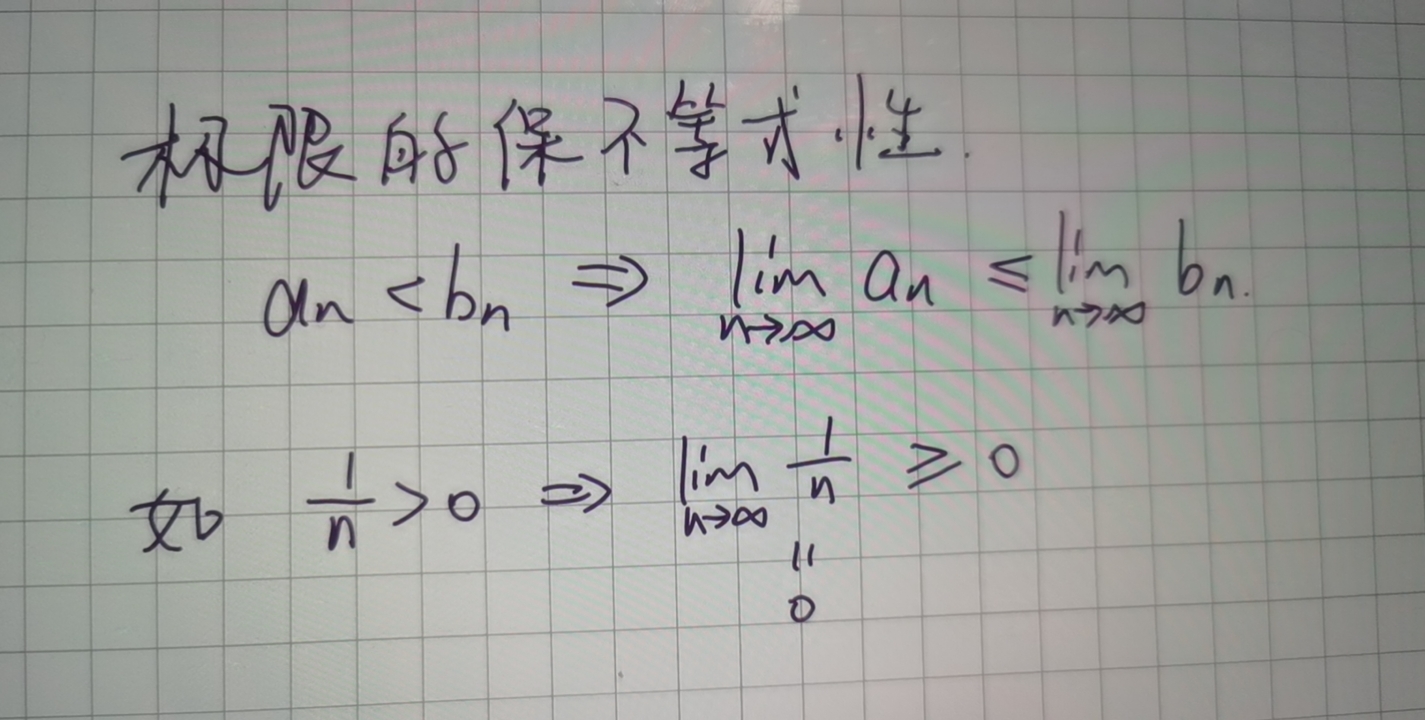 极限的保不等式性.
an < bn ⇒ lim n→∞ an ≤ lim n→∞ bn.
如 1/n > 0 ⇒ lim n→∞ 1/n ≥ 0
=
0